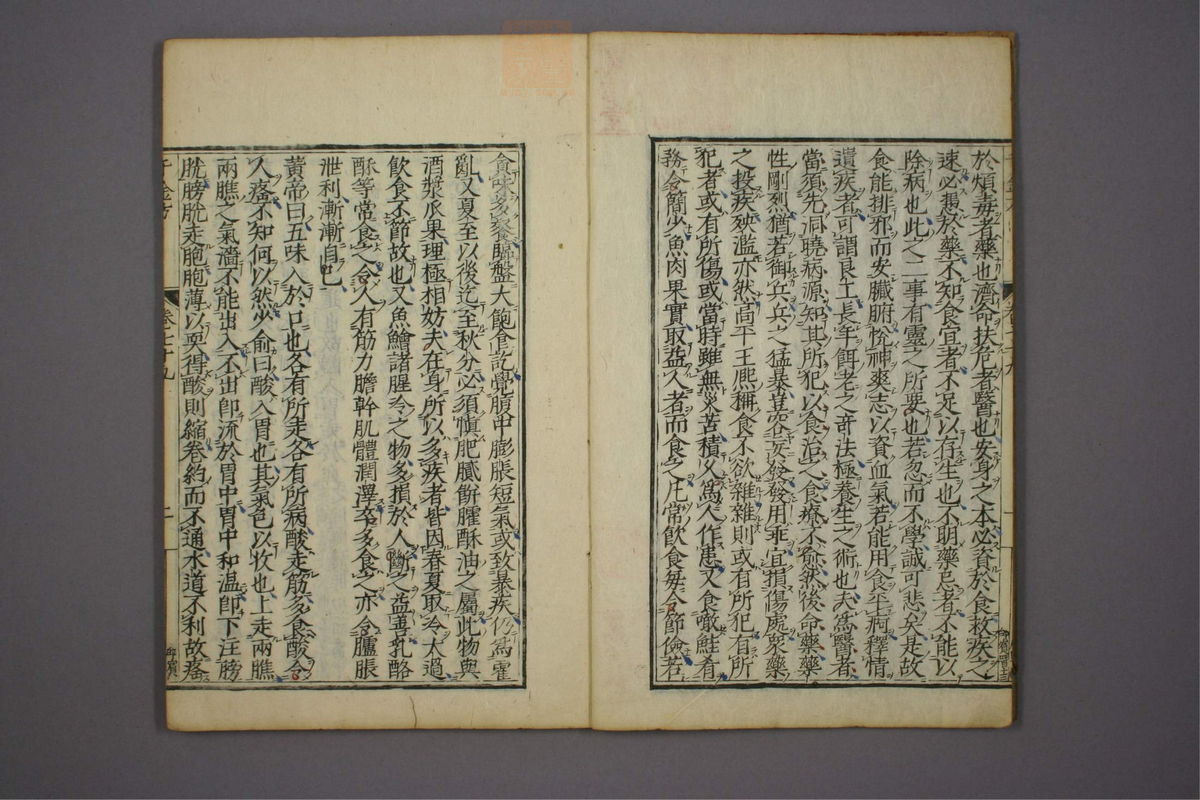 於煩毒者藥也濟命扶危者醫也安身之本必資於食救疾之
速必憑於藥不知食宜者不足以存生也不明藥忌者不能以
除病也此之二事有靈之所要也若忽而不學誠可悲矣是故
食能排邪而安臟腑悅神爽志以資血氣若能用食平痾釋情
遣疾者可謂良工長年餌老之奇法極養生之術也夫爲醫者
當須先洞曉病源知其所犯以食治之食療不愈然後命藥藥
性剛烈猶若御兵兵之猛暴豈容妄發發用乖宜損傷處衆藥
之投疾殃濫亦然高平王熈稱食不欲雜雜則或有所犯有所
犯者或有所傷或當時雖無災苦積久爲人作患又食噉鮭肴
務令簡少魚肉果實取益人者而食之凡常飲食每令節儉若
貪味多飡臨盤大飽食訖覺腹中膨脹短氣或致暴疾仍爲霍
亂又夏至以後迄至秋分必須慎肥膩餅臛酥油之屬此物與
酒漿瓜果理極相妨夫在身所以多疾者皆因春夏取冷太過
飲食不節故也又魚鱠諸腥冷之物多損於人斷之益善乳酪
酥等常食之令人有筋力膽幹肌體潤澤卒多食之亦令臚脹
泄利漸漸自已
黃帝曰五味入於口也各有所走各有所病酸走筋多食酸令
人癃不知何以然少俞曰酸入胃也其氣色以收也上走兩膲
兩膲之氣濇不能出入不出即流於胃中胃中和温即下注膀
胱膀胱走胞胞薄以耎得酸則縮卷約而不通水道不利故癃
千金方
卷七十九
二